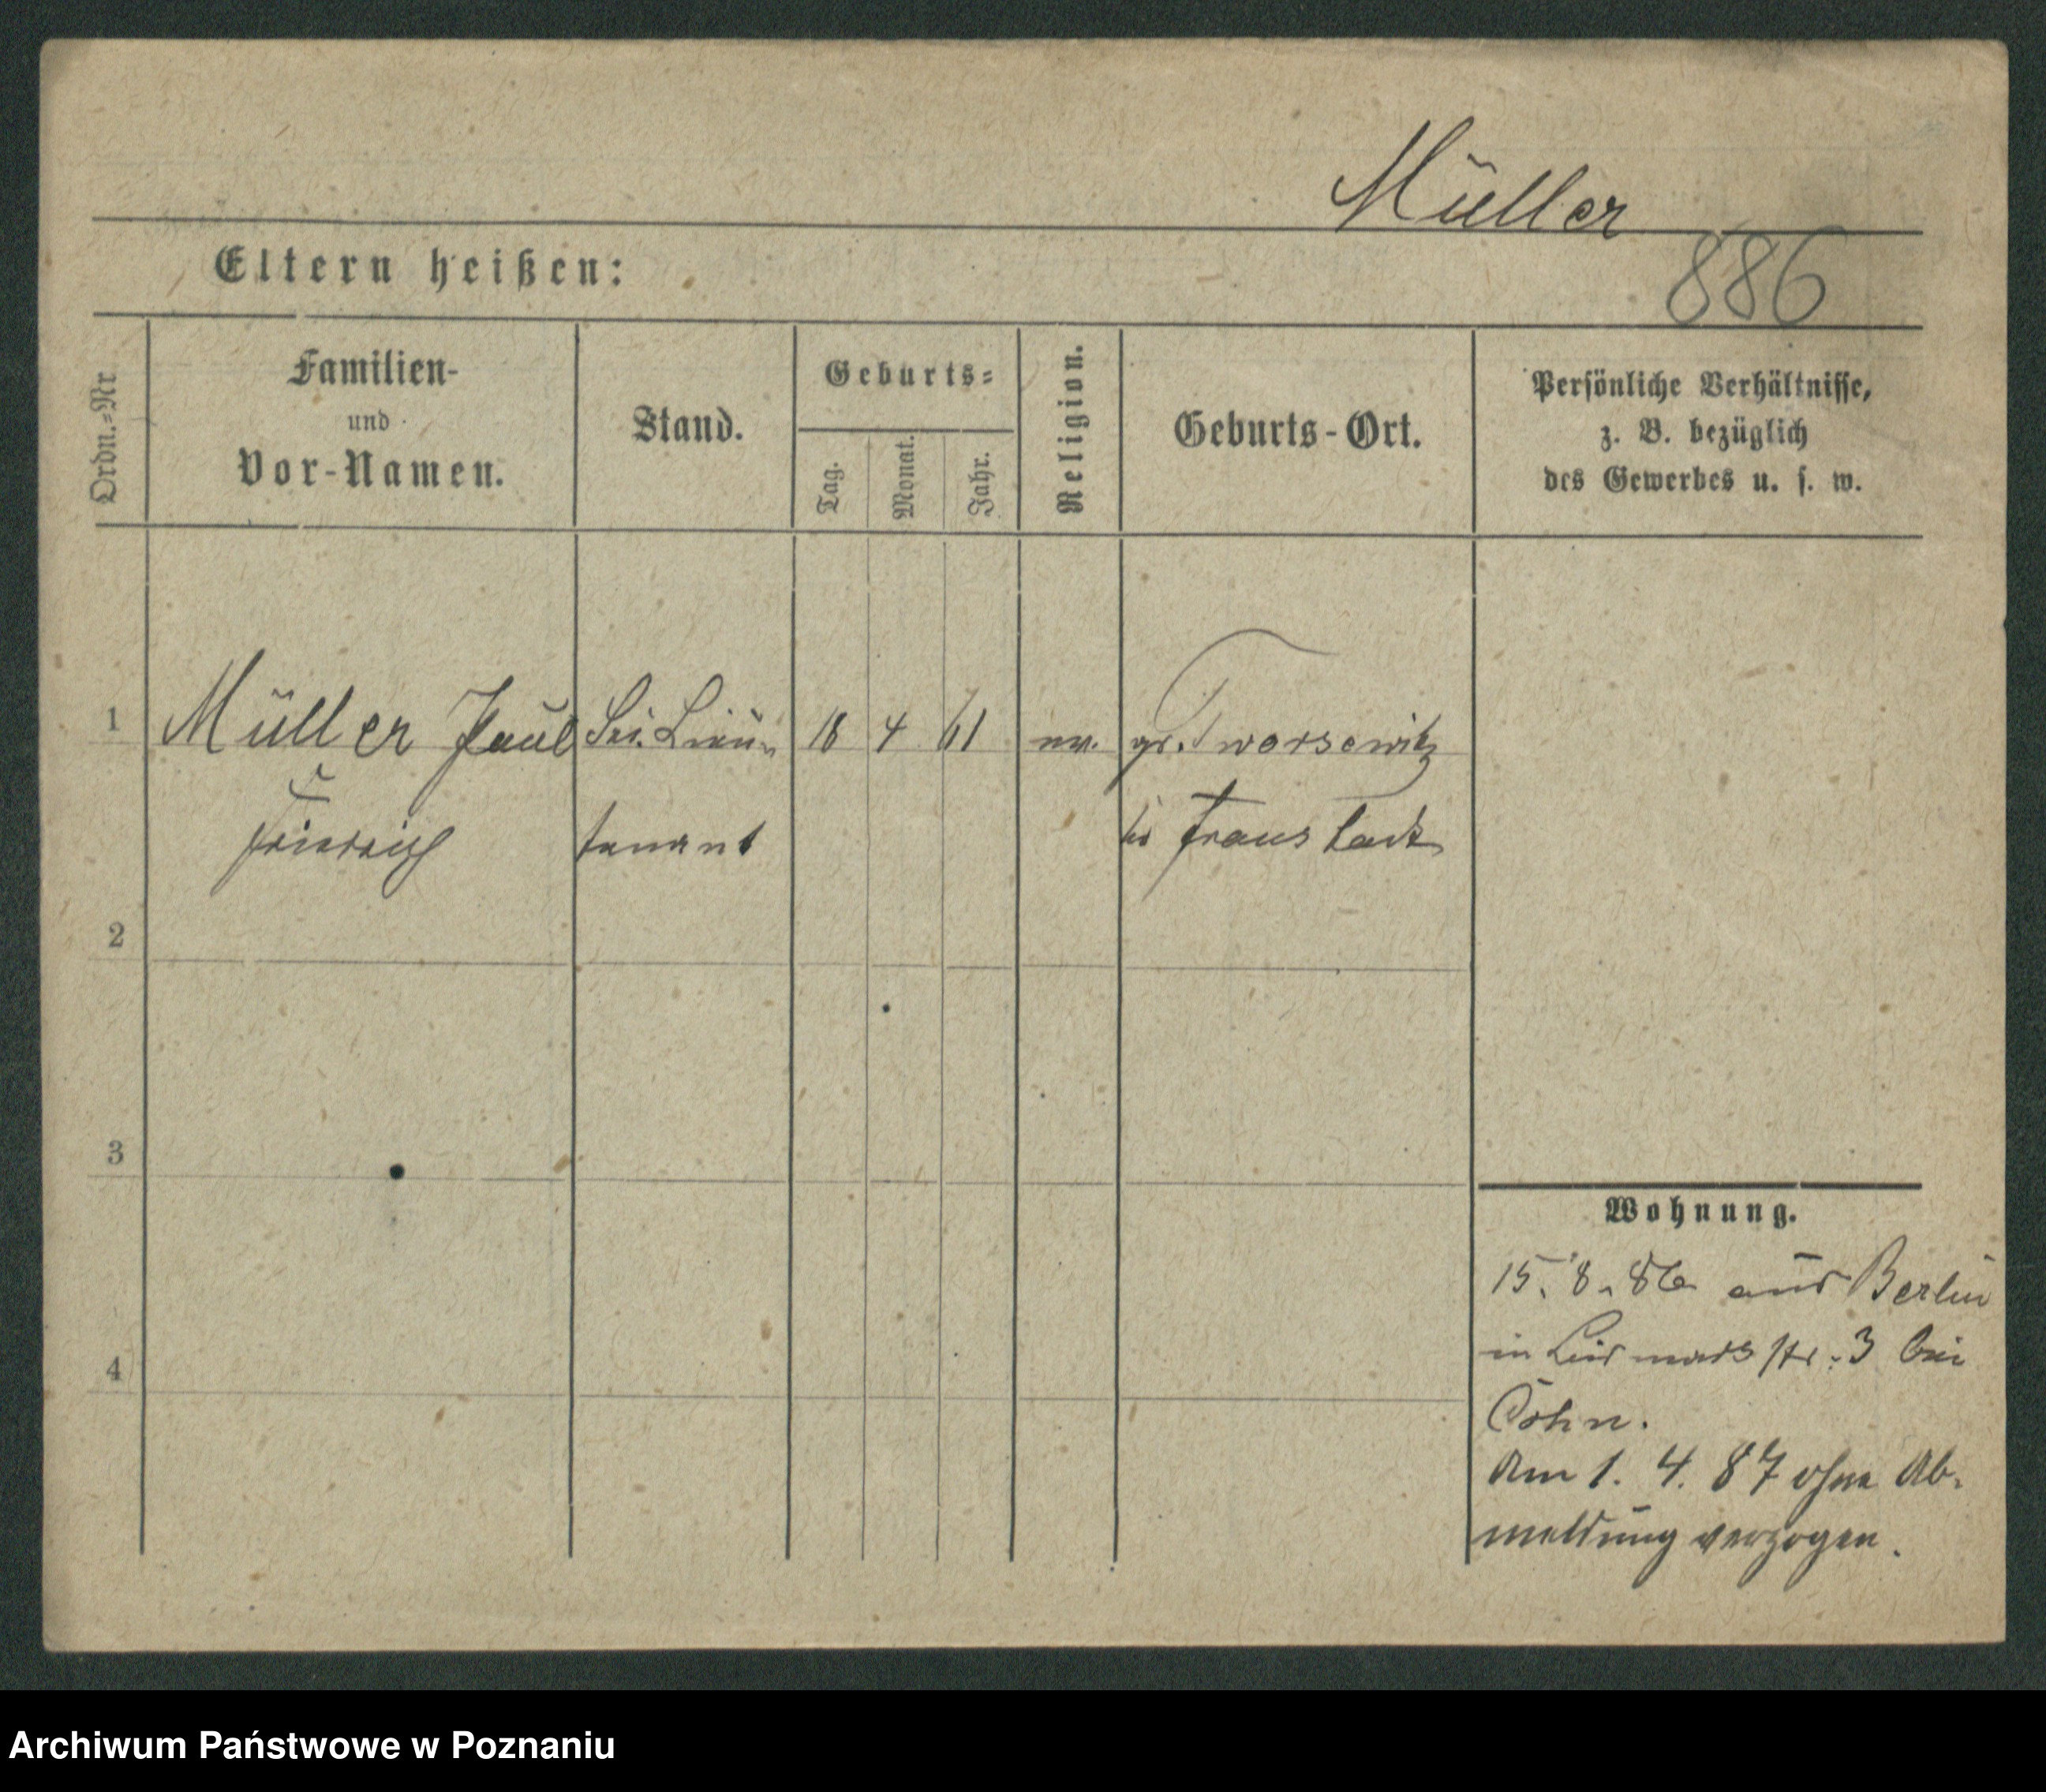 Müller
886
Eltern heißen:
Ordn.-Nr
Familien-
und
Vor-Namen.
Stand.
Geburts-
Tag.
Monat.
Jahr.
Religion.
Geburts-Ort.
Persönliche Verhältnisse,
z. B. bezüglich
des Gewerbes u. s. w.
1
Müller Paul
Lieu-
18
4
61
ev.
gr. Tworsewitz
Friedrich
tenant
Fraustadt
2
3
4
Wohnung.
15. 8. 86 aus Berlin
in str. 3 bei
Cohn.
Am 1. 4. 87 ohne Ab-
meldung verzogen.
Archiwum Państwowe w Poznaniu